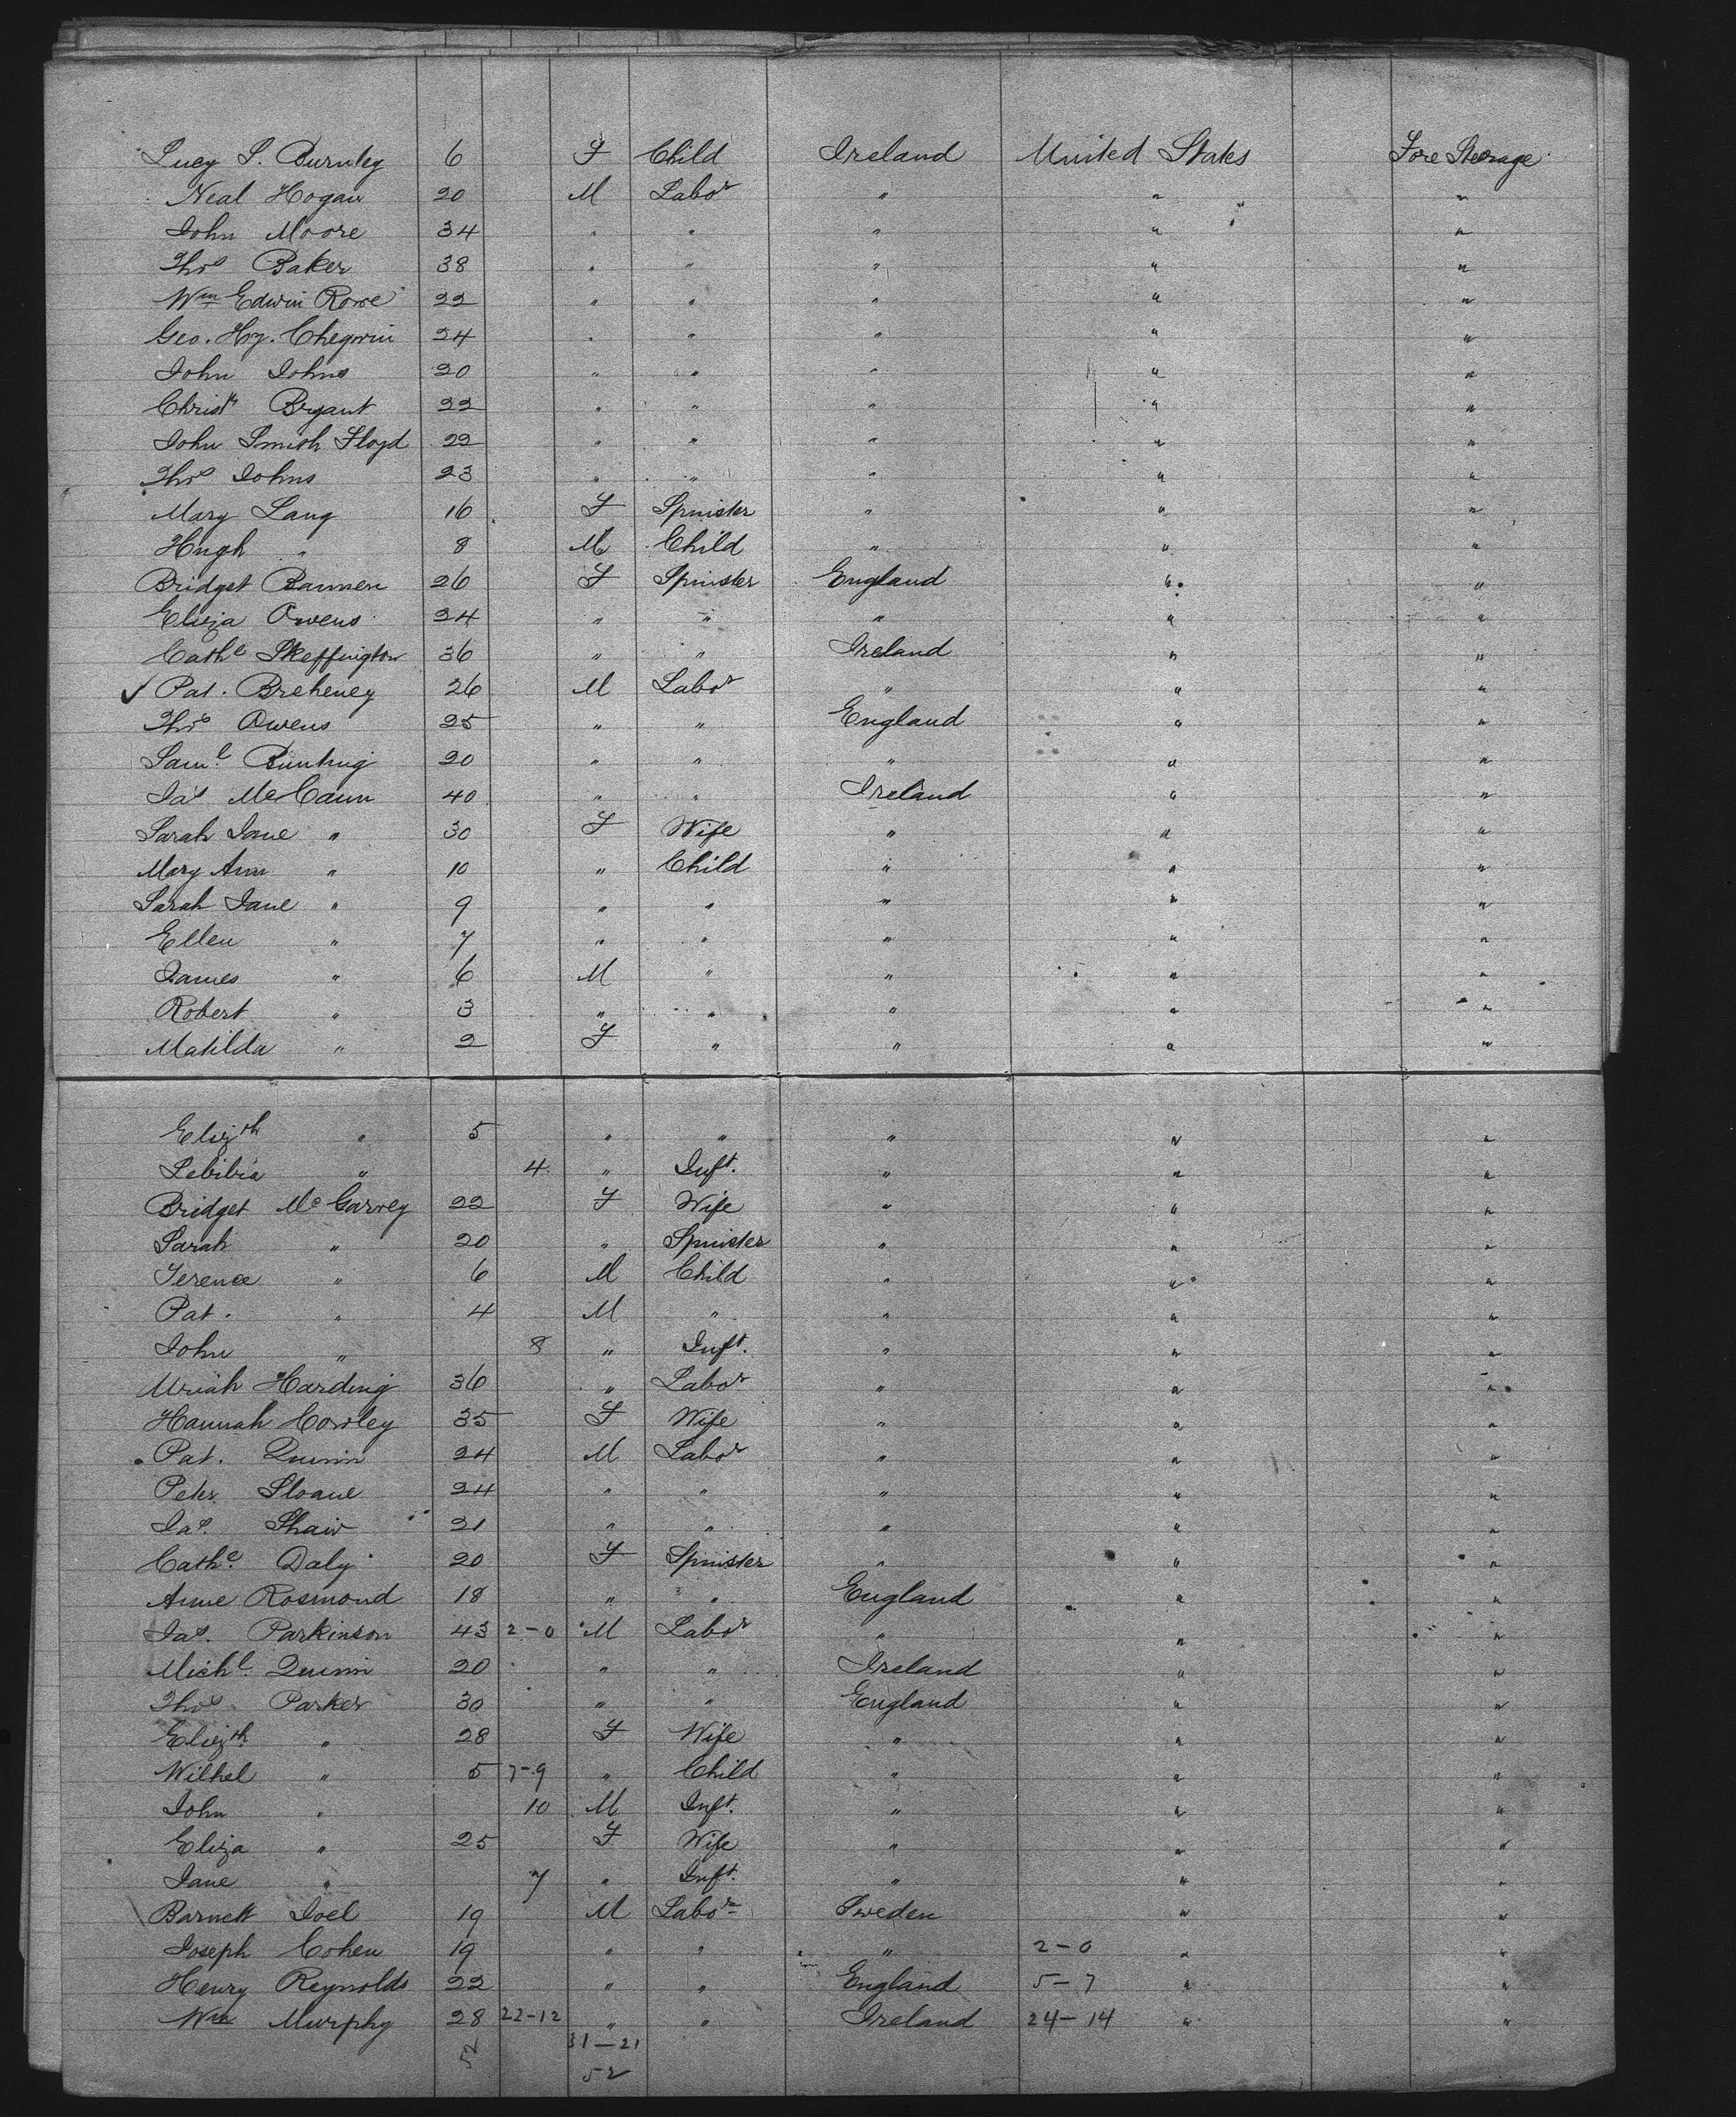 Lucy S. Burnley 6 F Child Ireland United States Fore Steerage
Neal Hogan 20 M Labor " " "
John Moore 34 " " " " "
Thos Baker 38 " " " " "
Wm Edwin Rowe 22 " " " " "
Geo. Hy. Chegwin 24 " " " " "
John Johns 20 " " " " "
Christr Bryant 22 " " " " "
John Smith Floyd 22 " " " " "
Thos Johns 23 " " " " "
Mary Lang 16 F Spinster " " "
Hugh " 8 M Child " " "
Bridget Bannen 26 F Spinster England " "
Eliza Owens 24 " " " " "
Cathe Skeffington 36 " " Ireland " "
✓ Pat. Breheney 26 M Labor " " "
Thos Owens 25 " " England " "
Saml. Bunting 20 " " " " "
Jas McCann 40 " " Ireland " "
Sarah Jane " 30 F Wife " " "
Mary Ann " 10 " Child " " "
Sarah Jane " 9 " " " " "
Ellen " 7 " " " " "
James " 6 M " " " "
Robert " 3 " " " " "
Matilda " 2 F " " " "
Elizth " 5 " " " " "
" 4 " Inft. " " "
Bridget McGarvey 22 F Wife " " "
Sarah " 20 " Spinster " " "
Terence " 6 M Child " " "
Pat. " 4 M " " " "
John " 8 " Inft. " " "
Uriah Harding 36 " Labor " " "
Hannah Cowley 35 F Wife " " "
Pat. Quinn 24 M Labor " " "
Peter Sloane 24 " " " " "
Jas. Shaw 21 " " " " "
Cathe. Daly 20 F Spinster " " "
Anne Rosmond 18 " " England " "
Jas. Parkinson 43 2-0 M Labor " " "
Michl. Quinn 20 " " Ireland " "
Thos Parker 30 " " England " "
Elizth. " 28 F Wife " " "
Wilhel " 5 7-9 " Child " " "
John " 10 M Inft. " " "
Eliza " 25 F Wife " " "
Jane " 7 " Inft. " " "
Barnett Joel 19 M Labor Sweden " "
Joseph Cohen 19 " " " 2-0 " "
Henry Reynolds 22 " " England 5-7 " "
Wm Murphy 28 22-12 " " Ireland 24-14 " "
52 31-21
52